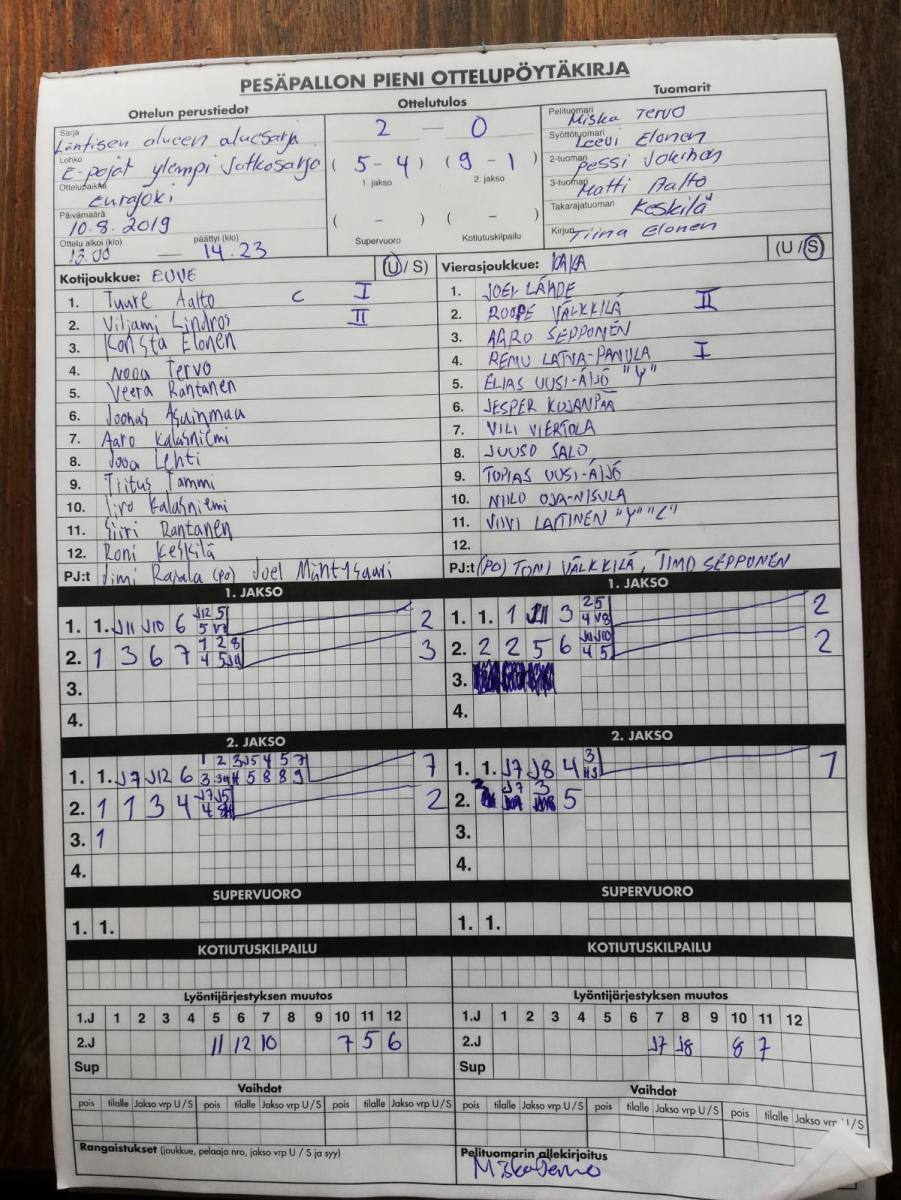 PESÄPALLON PIENI OTTELUPÖYTÄKIRJA
Ottelun perustiedot
Ottelutulos
Tuomarit
Sarja
Läntisen alueen aluesarja
Lohko
E-pojat ylempi jatkosarja
Ottelupaikka
Eurajoki
Päivämäärä
10.8.2019
Ottelu alkoi (klo) päättyi (klo)
13.00 — 14.23
2 — 0
( 5 - 4 ) ( 9 - 1 )
1. jakso 2. jakso
( - ) ( - )
Supervuoro Kotiutuskilpailu
Pelituomari
Miska Tervo
Syöttötuomari
Leevi Elonen
2-tuomari
Pessi
3-tuomari
Matti Aalto
Takarajatuomari
Keskilä
Kirjuri
Tiina Elonen
Kotijoukkue: EUVE (U / S)
1. Tuure Aalto C I
2. Viljami Lindros II
3. Konsta Elonen
4. Nooa Tervo
5. Veera Rantanen
6. Joonas Asuinmaa
7. Aaro Kalasniemi
8. Jooa Lehti
9. Tiitus Tammi
10. Iiro Kalasniemi
11. Siiri Rantanen
12. Roni Keskilä
PJ:t Jimi Rajala (PO) Joel Mäntysaari
Vierasjoukkue: KAKA (U / S)
1. JOEL LÄHDE
2. ROOPE VÄLKKILÄ II
3. AARO SEPPONEN
4. REMU LATVA-PANULA I
5. ELIAS UUSI-ÄIJÖ "Y"
6. JESPER KUJANPÄÄ
7. VILI VIERTOLA
8. JUUSO SALO
9. TOPIAS UUSI-ÄIJÖ
10. NIILO OJA-NISULA
11. VIIVI LAITINEN "Y" "C"
12.
PJ:t (PO) TONI VÄLKKILÄ, TIMO SEPPONEN
1. JAKSO
1. 1. J11 J10 6 J12 5 2
5
2. 1 3 6 7 1 2 8 3
4 5
3.
4.
1. JAKSO
1. 1. 1 3 2 5 2
4 V8
2. 2 2 5 6 J10 2
4 5
3.
4.
2. JAKSO
1. 1. J7 J12 6 1 2 3 J5 4 5 7 7
5 8 8 9
2. 1 1 3 4 J7 J5 2
4
3. 1
4.
2. JAKSO
1. 1. J7 J8 4 3 1
2. J7 3 5
3.
4.
SUPERVUORO
1. 1.
SUPERVUORO
1. 1.
KOTIUTUSKILPAILU
KOTIUTUSKILPAILU
Lyöntijärjestyksen muutos
1.J 1 2 3 4 5 6 7 8 9 10 11 12
2.J 11 12 10 7 5 6
Sup
Lyöntijärjestyksen muutos
1.J 1 2 3 4 5 6 7 8 9 10 11 12
2.J J7 J8 8 7
Sup
Vaihdot
pois tilalle Jakso vrp U / S pois tilalle Jakso vrp U / S pois tilalle Jakso vrp U / S
Vaihdot
pois tilalle Jakso vrp U / S pois tilalle Jakso vrp U / S pois tilalle Jakso vrp U / S
Rangaistukset (joukkue, pelaaja nro, jakso vrp U / S ja syy)
Pelituomarin allekirjoitus
Miska Tervo